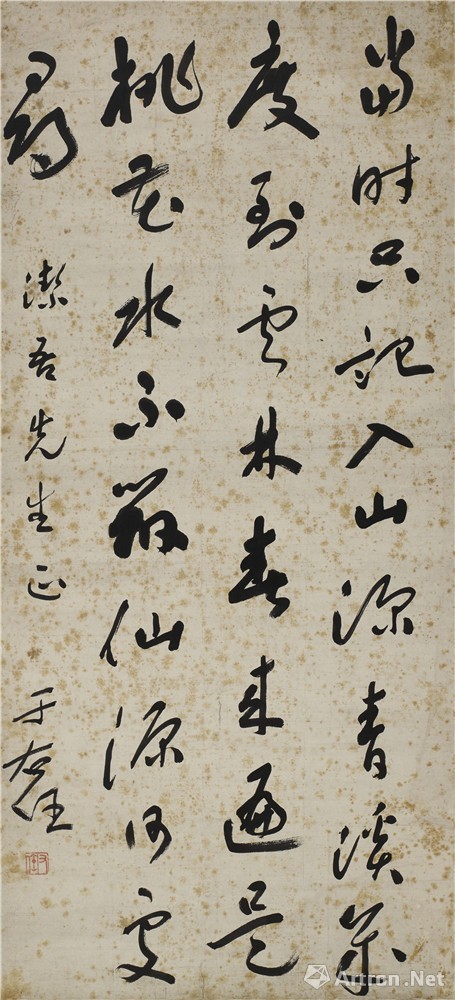 當時只記入山深青溪幾
度到雲林春來遍是
桃花水不辨仙源何處
尋
潔吾先生正
于右任
右任
Artron.Net